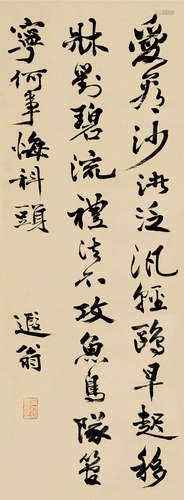 愛看沙渚泛汎輕鷗早起移
牀對碧流禮法不攻魚鳥隊管
寧何事悔科頭
遐翁